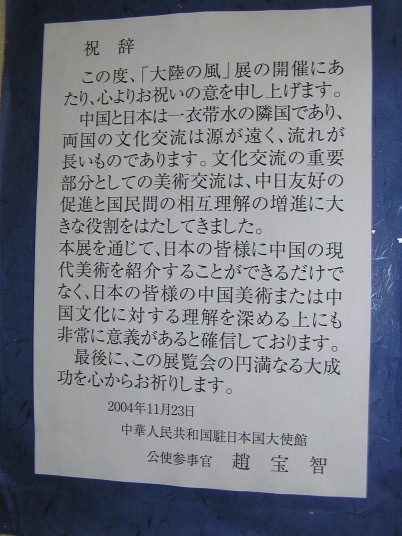 祝 辞
この度、「大陸の風」展の開催にあ
たり、心よりお祝いの意を申し上げます。
中国と日本は一衣帯水の隣国であり、
両国の文化交流は源が遠く、流れが
長いものであります。文化交流の重要
部分としての美術交流は、中日友好の
促進と国民間の相互理解の増進に大
きな役割をはたしてきました。
本展を通じて、日本の皆様に中国の現
代美術を紹介することができるだけで
なく、日本の皆様の中国美術または中
国文化に対する理解を深める上にも
非常に意義があると確信しております。
最後に、この展覧会の円満なる大成
功を心からお祈りします。
2004年11月23日
中華人民共和国駐日本国大使館
公使参事官 趙 宝 智